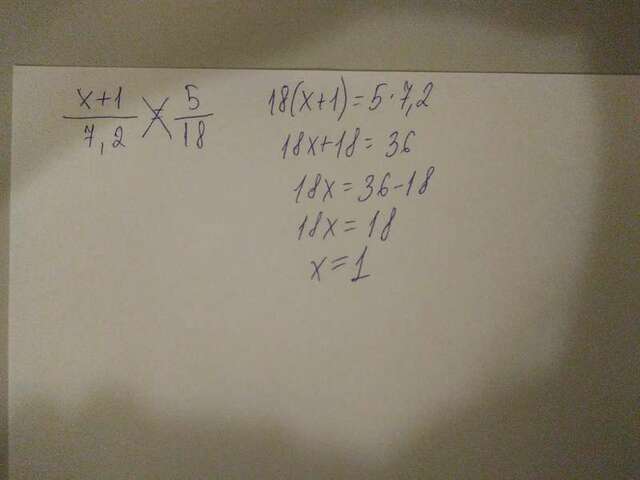 x+1/7,2 = 5/18
18(x+1)=5·7,2
18x+18=36
18x=36-18
18x=18
x=1